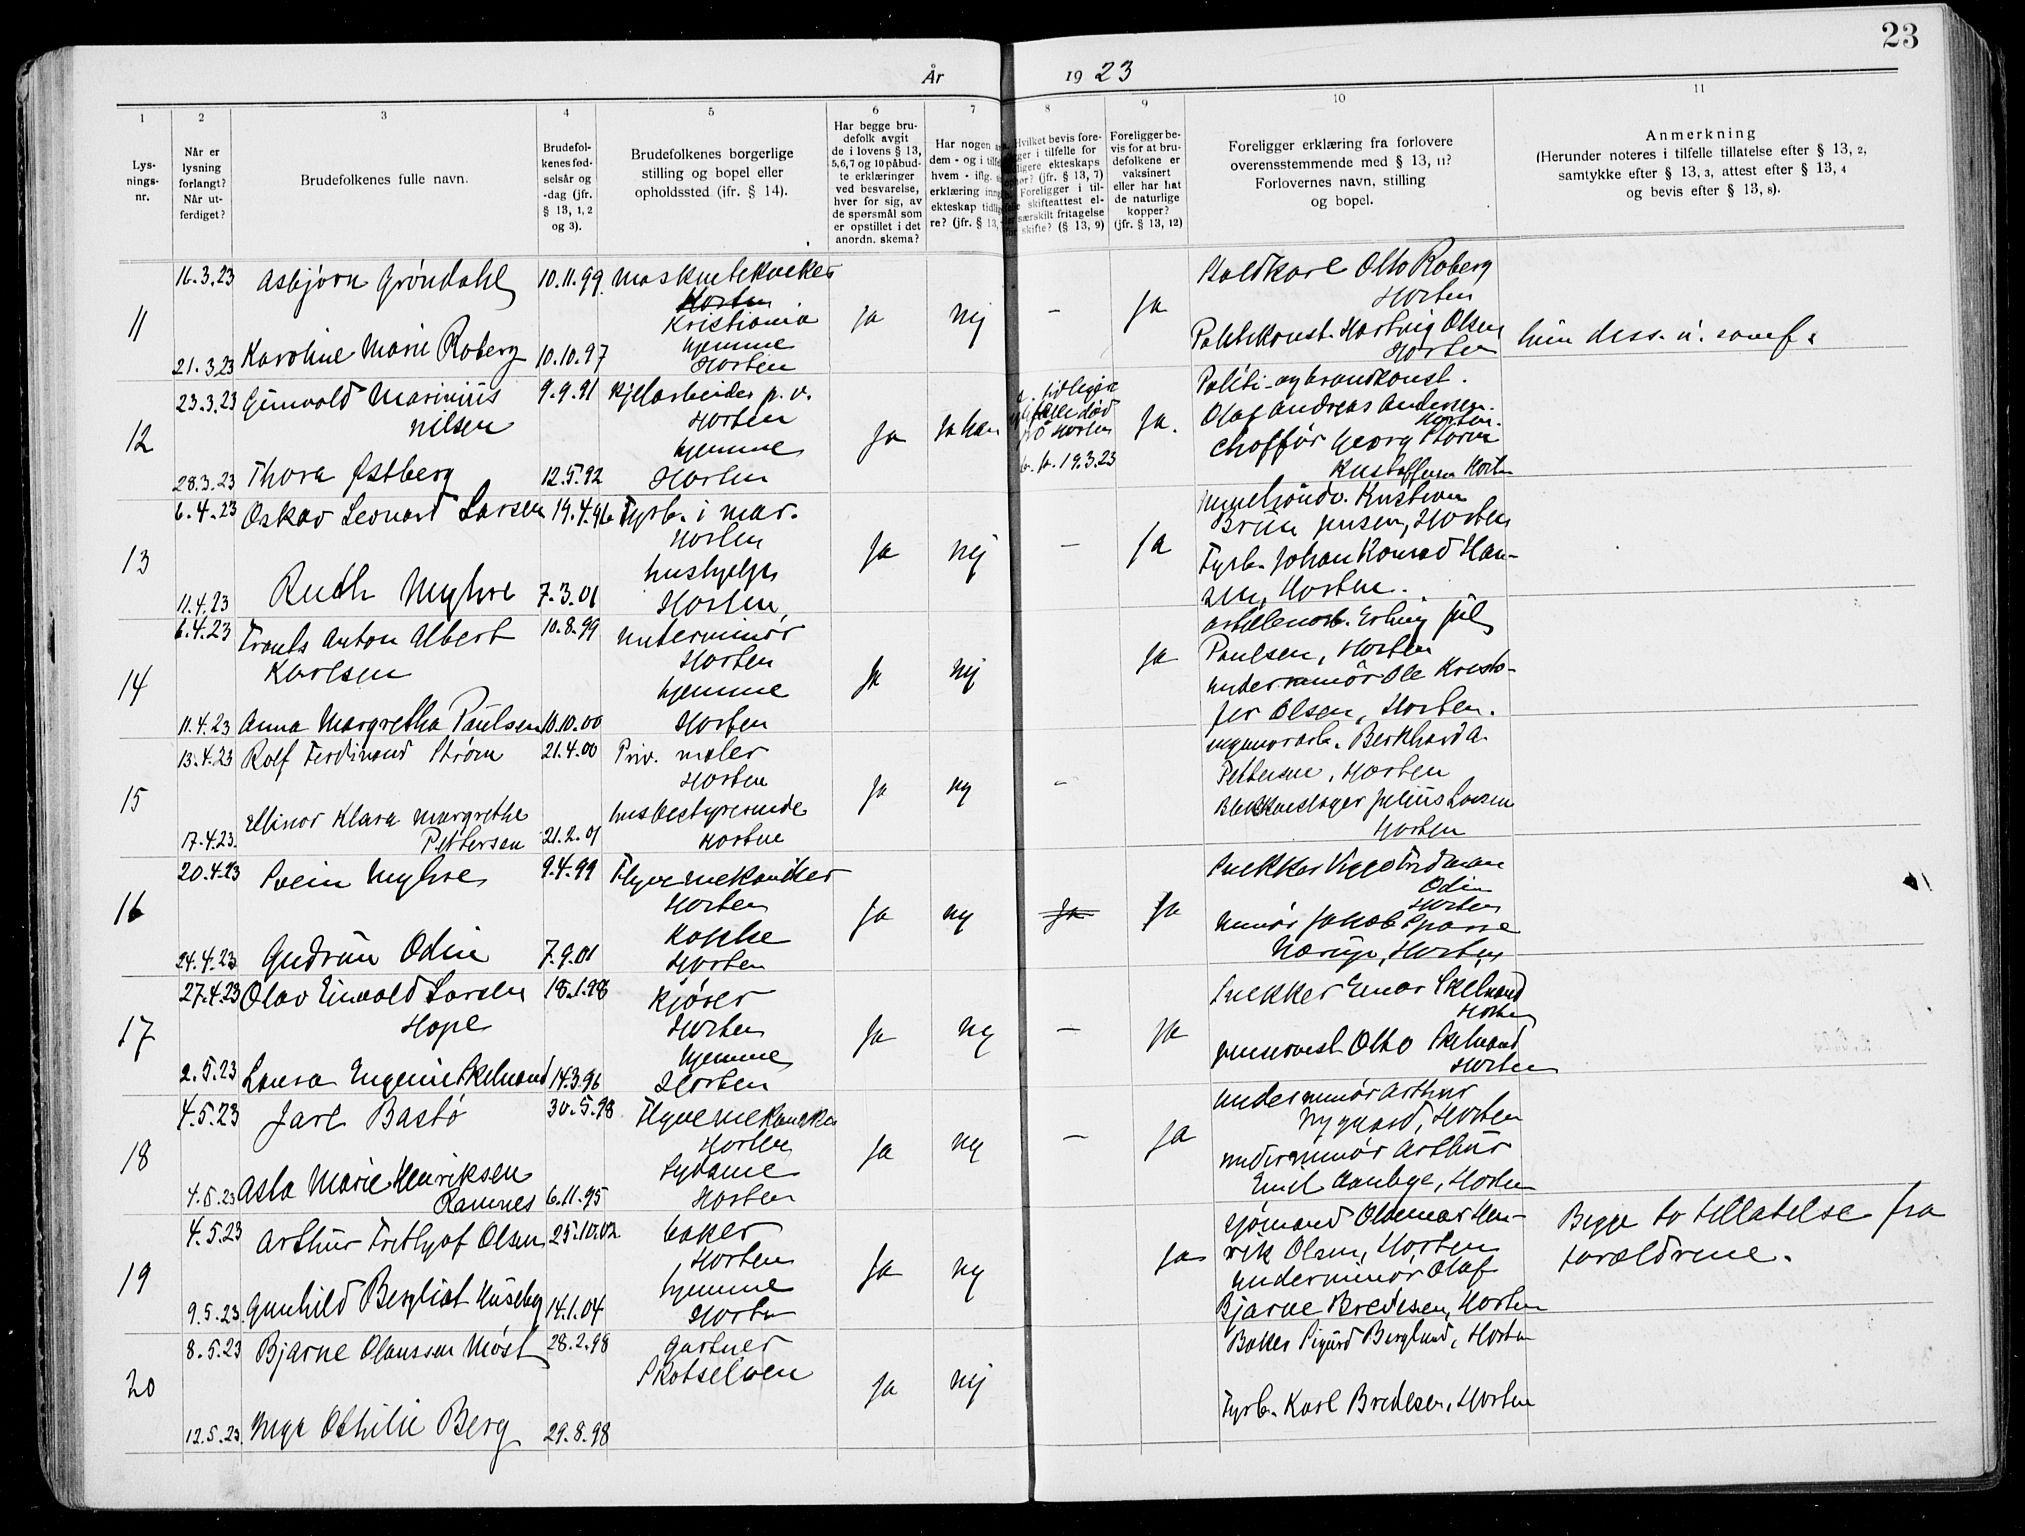 23
År 19 23
1 2 3 4 5 6 7 8 9 10 11
Lys-
nings-
nr.
Når er
lysning
forlangt?
Når ut-
ferdiget?
Brudefolkenes fulle navn.
Brudefol-
kenes fød-
selsår og
-dag (jfr.
§ 13, 1, 2
og 3).
Brudefolkenes borgerlige
stilling og bopel eller
opholdssted (ifr. § 14).
Har begge bru-
defolk avgit
de i lovens § 13,
5,6,7 og 10 påbud-
te erklæringer
ved besvarelse,
hver for sig, av
de spørsmål som
er opstillet i det
anordn. skema?
Har nogen
dem - og i tilfe
hvem - iflg.
erklæring inng
ekteskap tidlig
re? (jfr. § 13,
Hvilket bevis fore-
ger i tilfelle for
ligere ekteskaps
ophør? (jfr. § 13, 7)
Foreligger i til-
skifteattest el-
særskilt fritagelse
for skifte? (§ 13, 9)
Foreligger be-
vis for at bru-
defolkene er
vaksinert
eller har hat
de naturlige
kopper?
(jfr. § 13, 12)
Foreligger erklæring fra forlovere
overensstemmende med § 13, 11?
Forlovernes navn, stilling
og bopel.
Anmerkning
(Herunder noteres i tilfelle tillatelse efter § 13, 2,
samtykke efter § 13, 3, attest efter § 13, 4
og bevis efter § 13, 8).
11
16.3.23 Asbjørn Grøndahl 10.11.99
Horten
Kristiania
21.3.23 Karoline Marie Roberg 10.10.97
hjemme
Horten
Ja nej – Ja
Otto Roberg
Horten
Hartvig Olsen
Horten
hun diss. u. samf.
12
23.3.23 Gunvald Marinius
Nilsen
9.9.91 Kjelarbeider p. v.
Horten
28.3.23 Thora Østberg 12.5.92
hjemme
Horten
Ja Ja han
Horten
19.3.23
Ja.
Politi- og brandkonst.
Olaf Andreas Andersen.
Horten.
Choffør Georg Storm
Kristoffersen Horten
13
6.4.23 Oskar Leonard Larsen 19.4.96 Fyrb. i mar.
Horten
11.4.23 Ruth Myhre 7.3.01
hushjelp
Horten,
Ja nej – Ja
Kristian
Bruu Jensen, Horten
Fyrb. Johan Konrad Han-
sen, Horten.
14
6.4.23 Frants Anton Albert
Karlsen
10.8.99 underminør
Horten
11.4.23 Anna Margretha Paulsen 10.10.00
hjemme
Horten
Ja nej Ja
Erling Juel
Paulsen, Horten
underminør Ole Kristo-
fer Olsen, Horten.
15
13.4.23 Rolf Ferdinand Strøm 21.4.00 Priv. maler
Horten
17.4.23 Ellinor Klara Margrethe
Pettersen
21.2.01 husbestyrerinde
Horten
Ja nej –
Berkhard A.
Pettersen, Horten
Blikkenslager Julius Larsen
Horten
16
20.4.23 Svein Myhre 9.4.99 Flyvemekaniker
Horten
24.4.23 Gudrun Odin 7.9.01
Kokke
Horten
Ja nej Ja Ja
Snekker Viggo Fridman
Odin
Horten
minør Jakob Sparre
Nærup, Horten
17
27.4.23 Olav Einvald Larsen
Hope
18.1.98 kjører
Horten
2.5.23 Laura Eugenie Skelnand 14.3.96
hjemme
Horten
Ja nej – Ja
Snekker Einar Skelnand
Horten
Otto Skelnand
Horten
18
4.5.23 Jarl Bastø 30.5.98 Flyvemekaniker
Horten
4.5.23 Asta Marie Henriksen
Ramnes
6.11.95 Sydame
Horten
Ja nej – Ja
underminør Arthur
Nygaard, Horten
underminør Arthur
Emil Haubye, Horten
19
4.5.23 Arthur Frithjof Olsen 25.10.02 baker
Horten
9.5.23 Gunhild Bergliot Huseby 14.1.04
hjemme
Horten
Ja nej Ja
sjømand Oldemar Hen-
rik Olsen, Horten
underminør Olaf
Bjarne Bredesen, Horten
Begge to tillatelse fra
forældrene.
20
8.5.23 Bjarne Olaussen Møst 28.2.98 gartner
Skotselven
12.5.23 Inga Othilie Berg 29.8.98
Ja nej
Baker Sigurd Berglund, Horten
Fyrb. Karl Bredesen, Horten